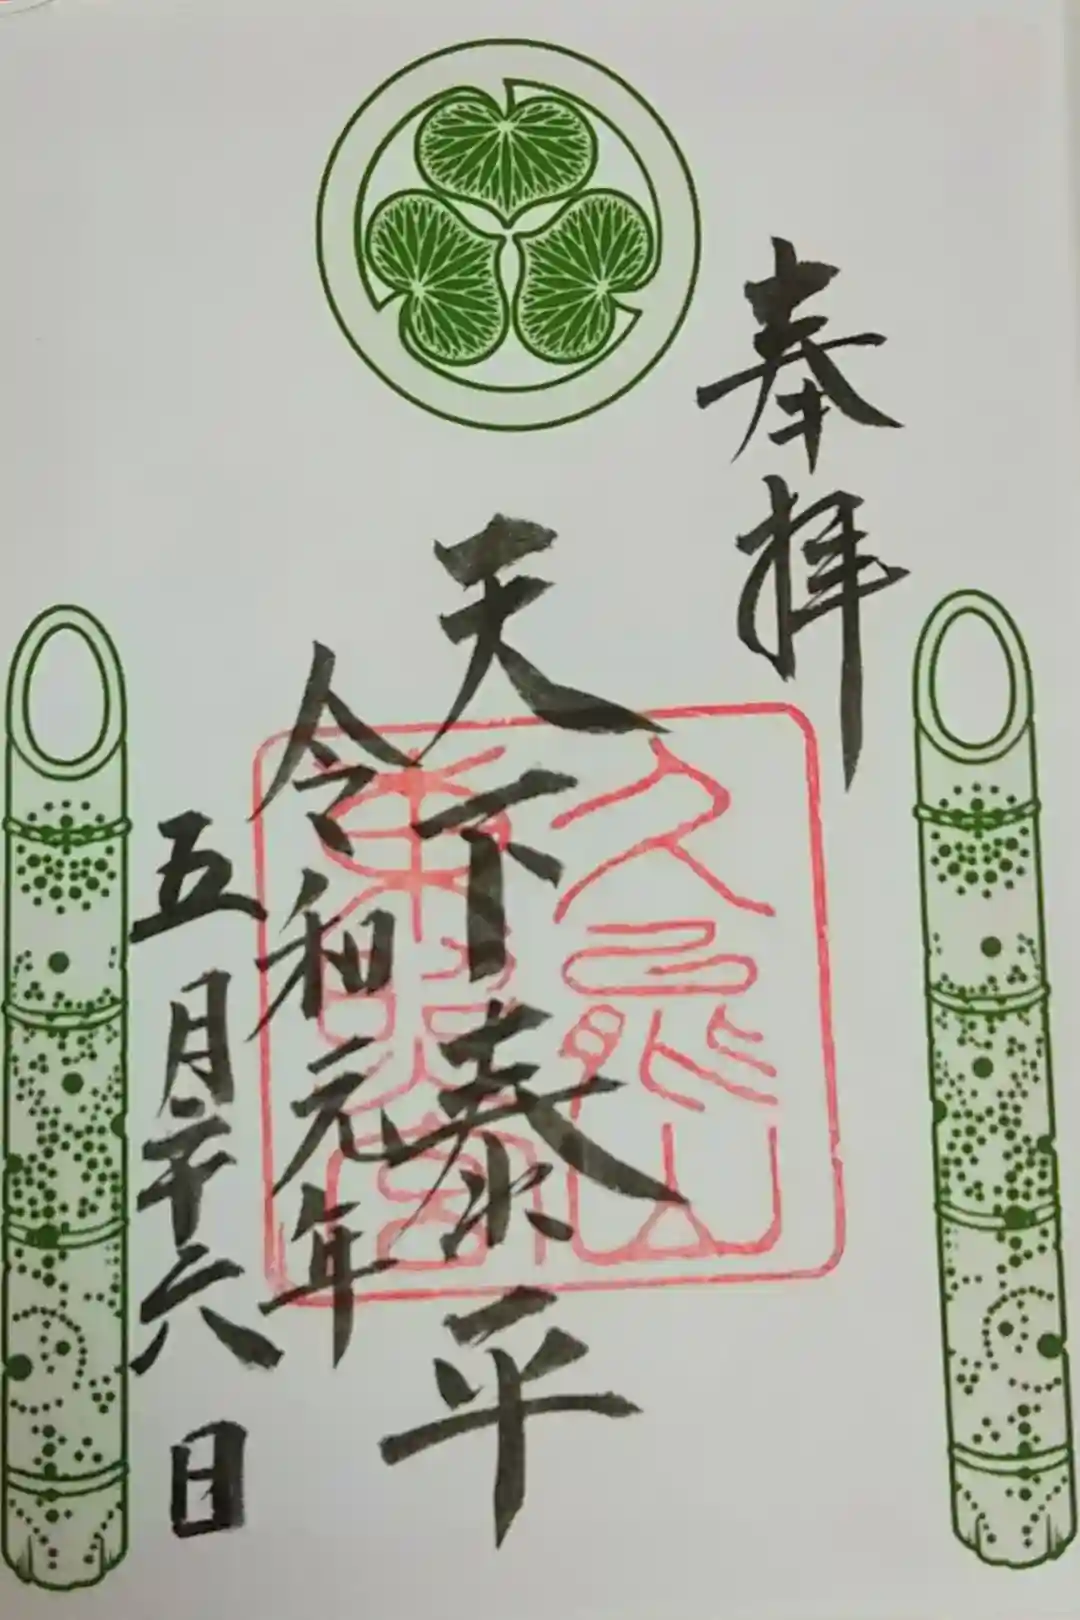 奉拝
天下泰平
久能山
東照宮
令和元年
五月二十六日